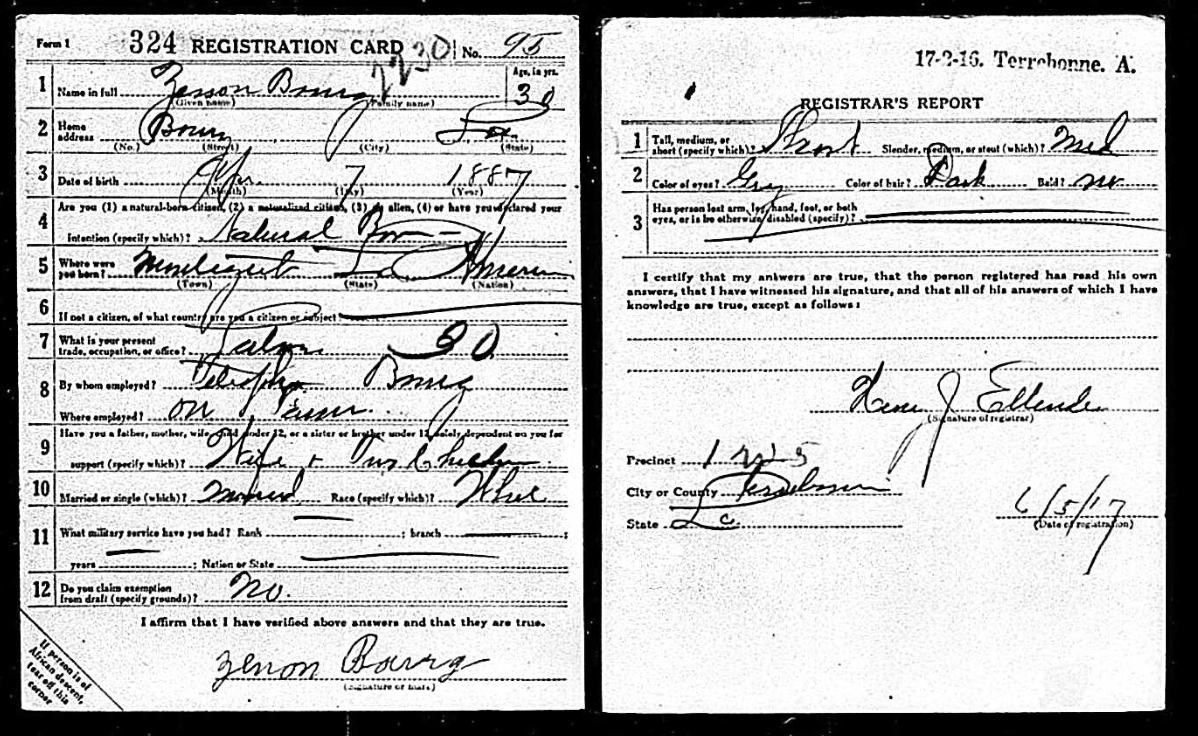 Form 1 324 REGISTRATION CARD 2230 No. 95
1 Name in full Zenon Bourg Age, in yrs. 30
(Given name) (Family name)
2 Home address Bourg La.
(No.) (Street) (City) (State)
3 Date of birth Apr. 7 1887
(Month) (Day) (Year)
4 Are you (1) a natural-born citizen, (2) a naturalized citizen, (3) an alien, (4) or have you declared your
intention (specify which)? Natural Born
5 Where were you born? Montegut La America
(Town) (State) (Nation)
6 If not a citizen, of what country are you a citizen or subject?
7 What is your present trade, occupation, or office? Labor 30
8 By whom employed? Bourg
Where employed? on Farm.
9 Have you a father, mother, wife, child under 12, or a sister or brother under 12, solely dependent on you for
support (specify which)? Wife + Two Children
10 Married or single (which)? Married Race (specify which)? White
11 What military service have you had? Rank ; branch ;
years ; Nation or State
12 Do you claim exemption from draft (specify grounds)? No.
I affirm that I have verified above answers and that they are true.
Zenon Bourg
(Signature or mark)
If person is of
African descent,
tear off this
corner
17-2-16. Terrebonne. A.
REGISTRAR'S REPORT
1 Tall, medium, or short (specify which)? Short Slender, medium, or stout (which)? Med
2 Color of eyes? Gray Color of hair? Dark Bald? no
3 Has person lost arm, leg, hand, foot, or both
eyes, or is he otherwise disabled (specify)?
I certify that my answers are true, that the person registered has read his own
answers, that I have witnessed his signature, and that all of his answers of which I have
knowledge are true, except as follows:
J Ellender
(Signature of registrar)
Precinct 1
City or County Terrebonne
State La
6/5/17
(Date of registration)